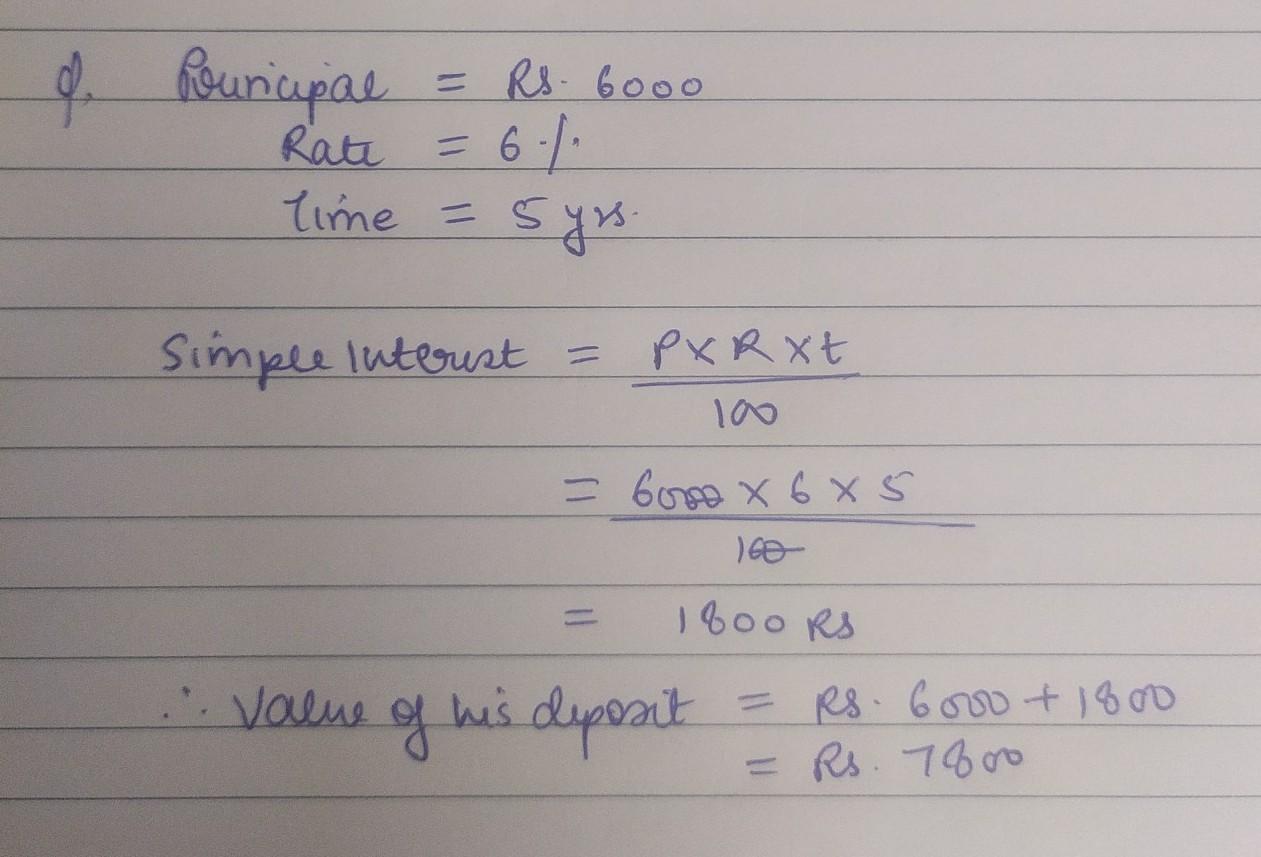 Q. Principal = Rs. 6000
Rate = 6 %
Time = 5 yrs.
Simple Interest = P X R X t
100
= 6000 X 6 X 5
100
= 1800 RS
∴ Value of his deposit = RS. 6000 + 1800
= Rs. 7800